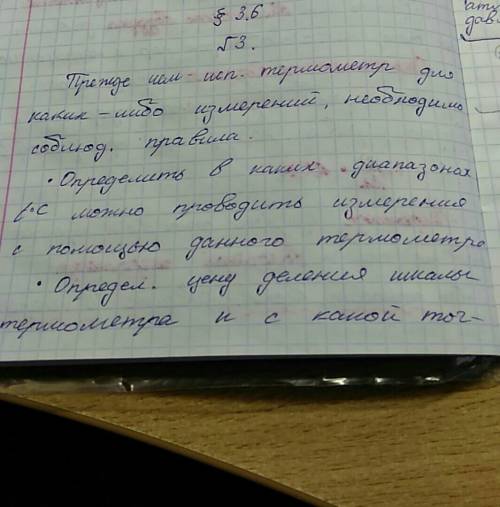 § 3.6
√3.
Прежде чем исп. термометр для
каких-либо измерений, необходимо
соблюд. правила.
• Определить в каких диапазонах
можно проводить измерения
с помощью данного термометра
• Определ. цену деления шкалы
термометра и с какой точ-